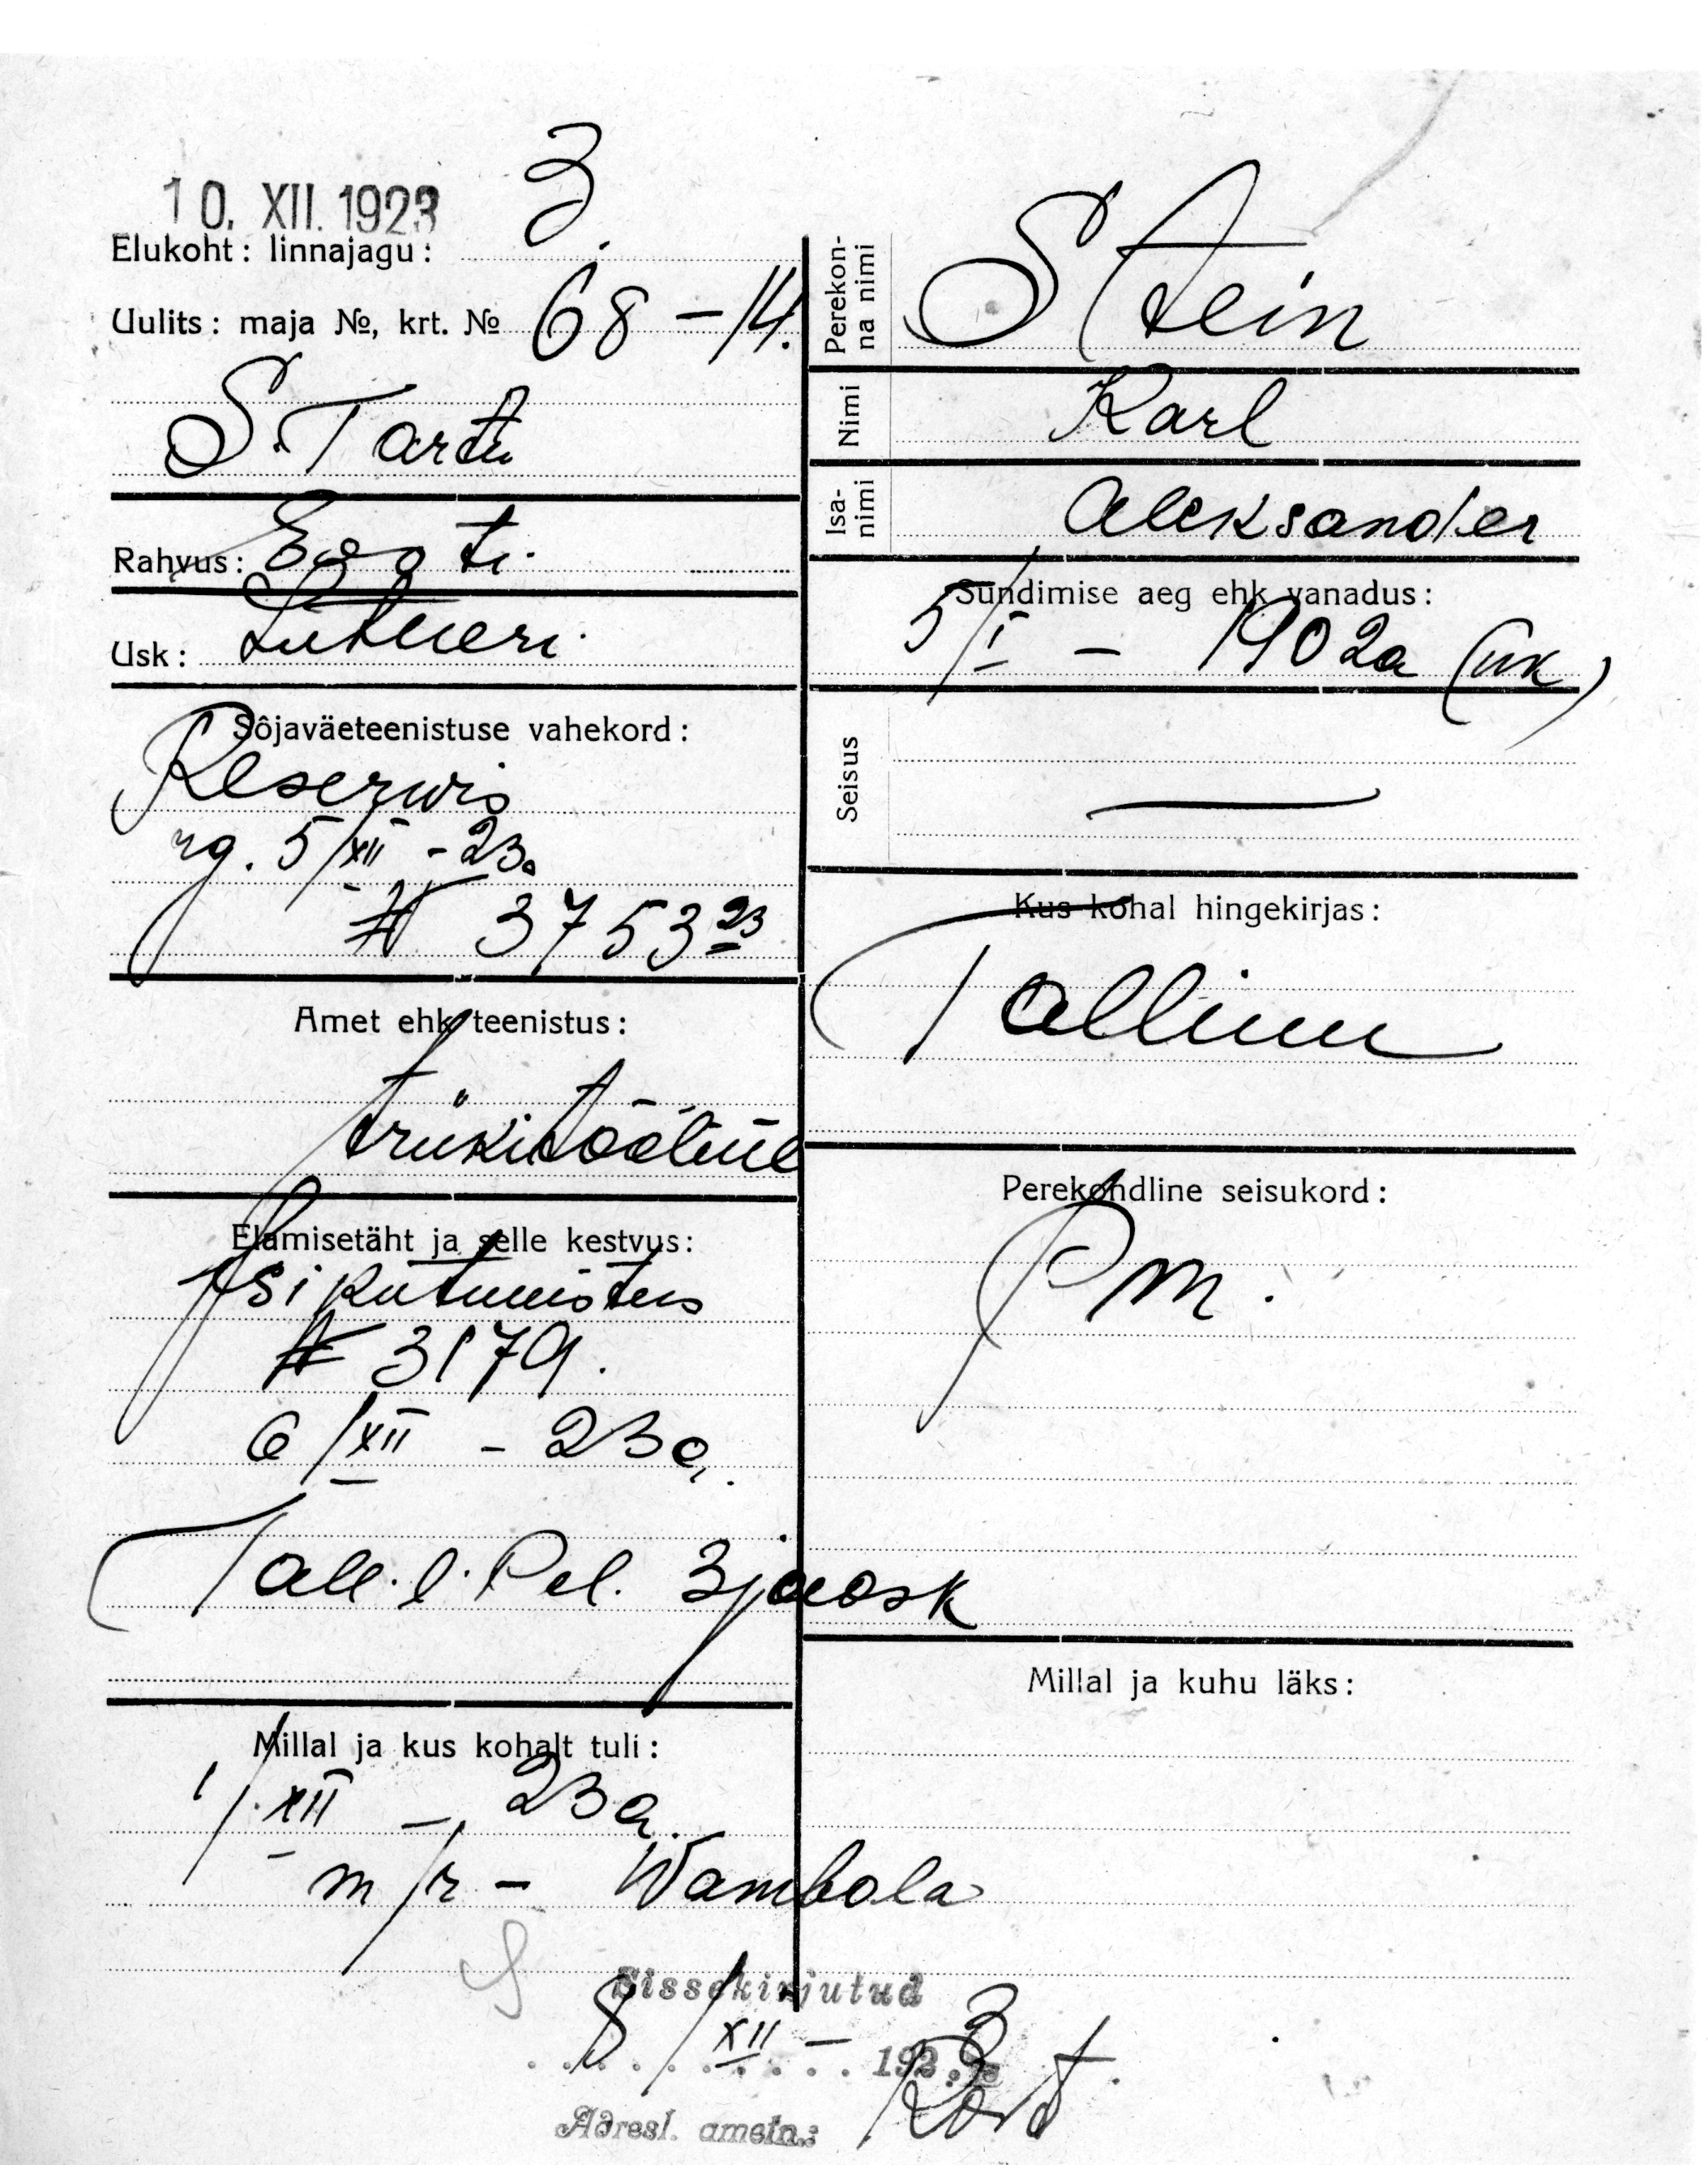 10. XII. 1923
Elukoht: linnajagu: 3.
Uulits: maja №, krt. № 68 – 14.
S. Tartu
Rahvus: Eesti.
Usk: Lutheri.
Sõjaväeteenistuse vahekord:
Reserwis
rg. 5/XII - 23.
№ 3753 23
Amet ehk teenistus:
trükitööline
Elamisetäht ja selle kestvus:
Isikutunnistus
№ 3179.
6/XII - 23 a.
Tall. l. Pol. 3 jaosk
Millal ja kus kohalt tuli:
1/XII – 23 a.
m/r – Wambola
Perekonna nimi
Stein
Nimi
Karl
Isanimi
Aleksander
Sündimise aeg ehk vanadus:
5/I – 1902 a (uk)
Seisus
—
Kus kohal hingekirjas:
Tallinn
Perekondline seisukord:
Pm.
Millal ja kuhu läks:
Sissekirjutud
8/XII – 192 3
Adresl. ametn.: